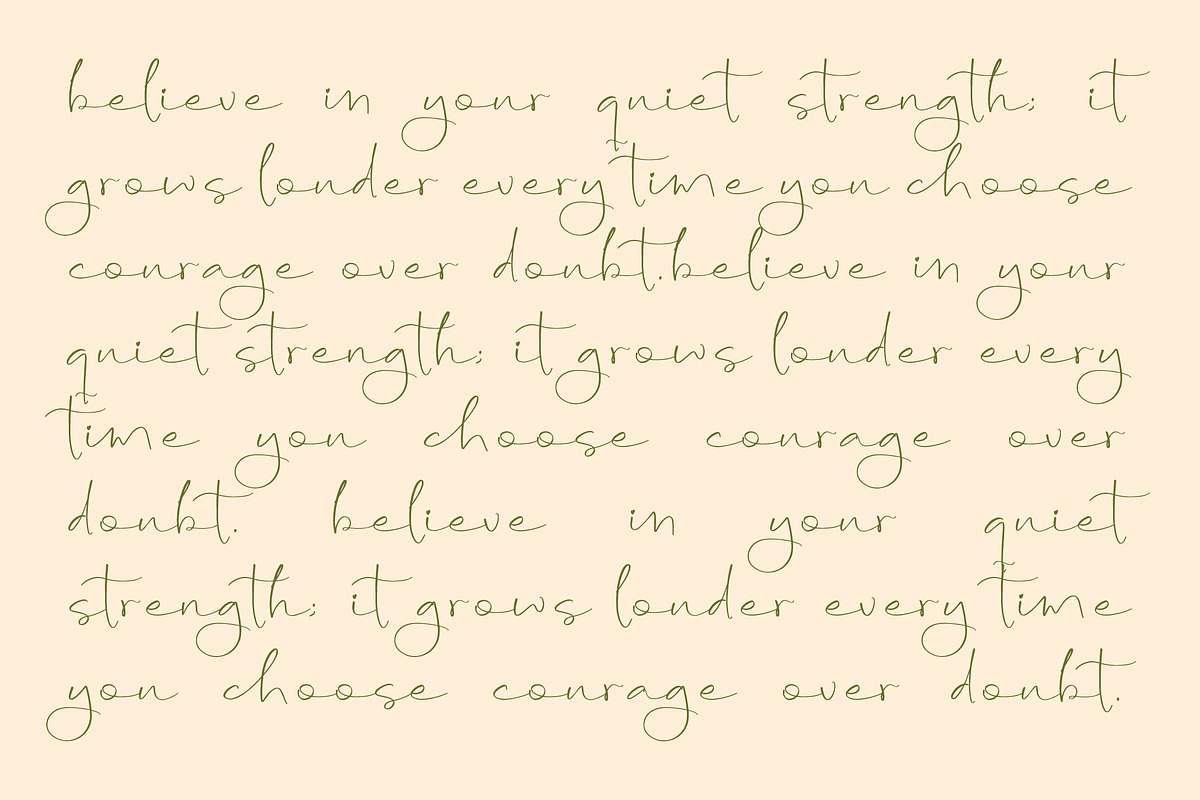 believe in your quiet strength; it
grows louder every time you choose
courage over doubt.believe in your
quiet strength; it grows louder every
time you choose courage over
doubt. believe in your quiet
strength; it grows louder every time
you choose courage over doubt.